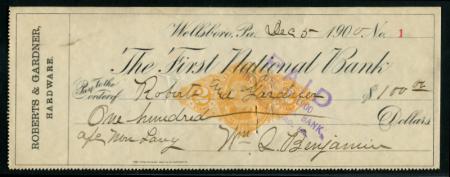 ROBERTS & GARDNER,
HARDWARE.
Wellsboro, Pa. Dec 5 1900. No. 1
The First National Bank
PAID
Pay To the order of Roberts and Gardner $100 00
One hundred Dollars
BANK.
Wm. L. Benjamin